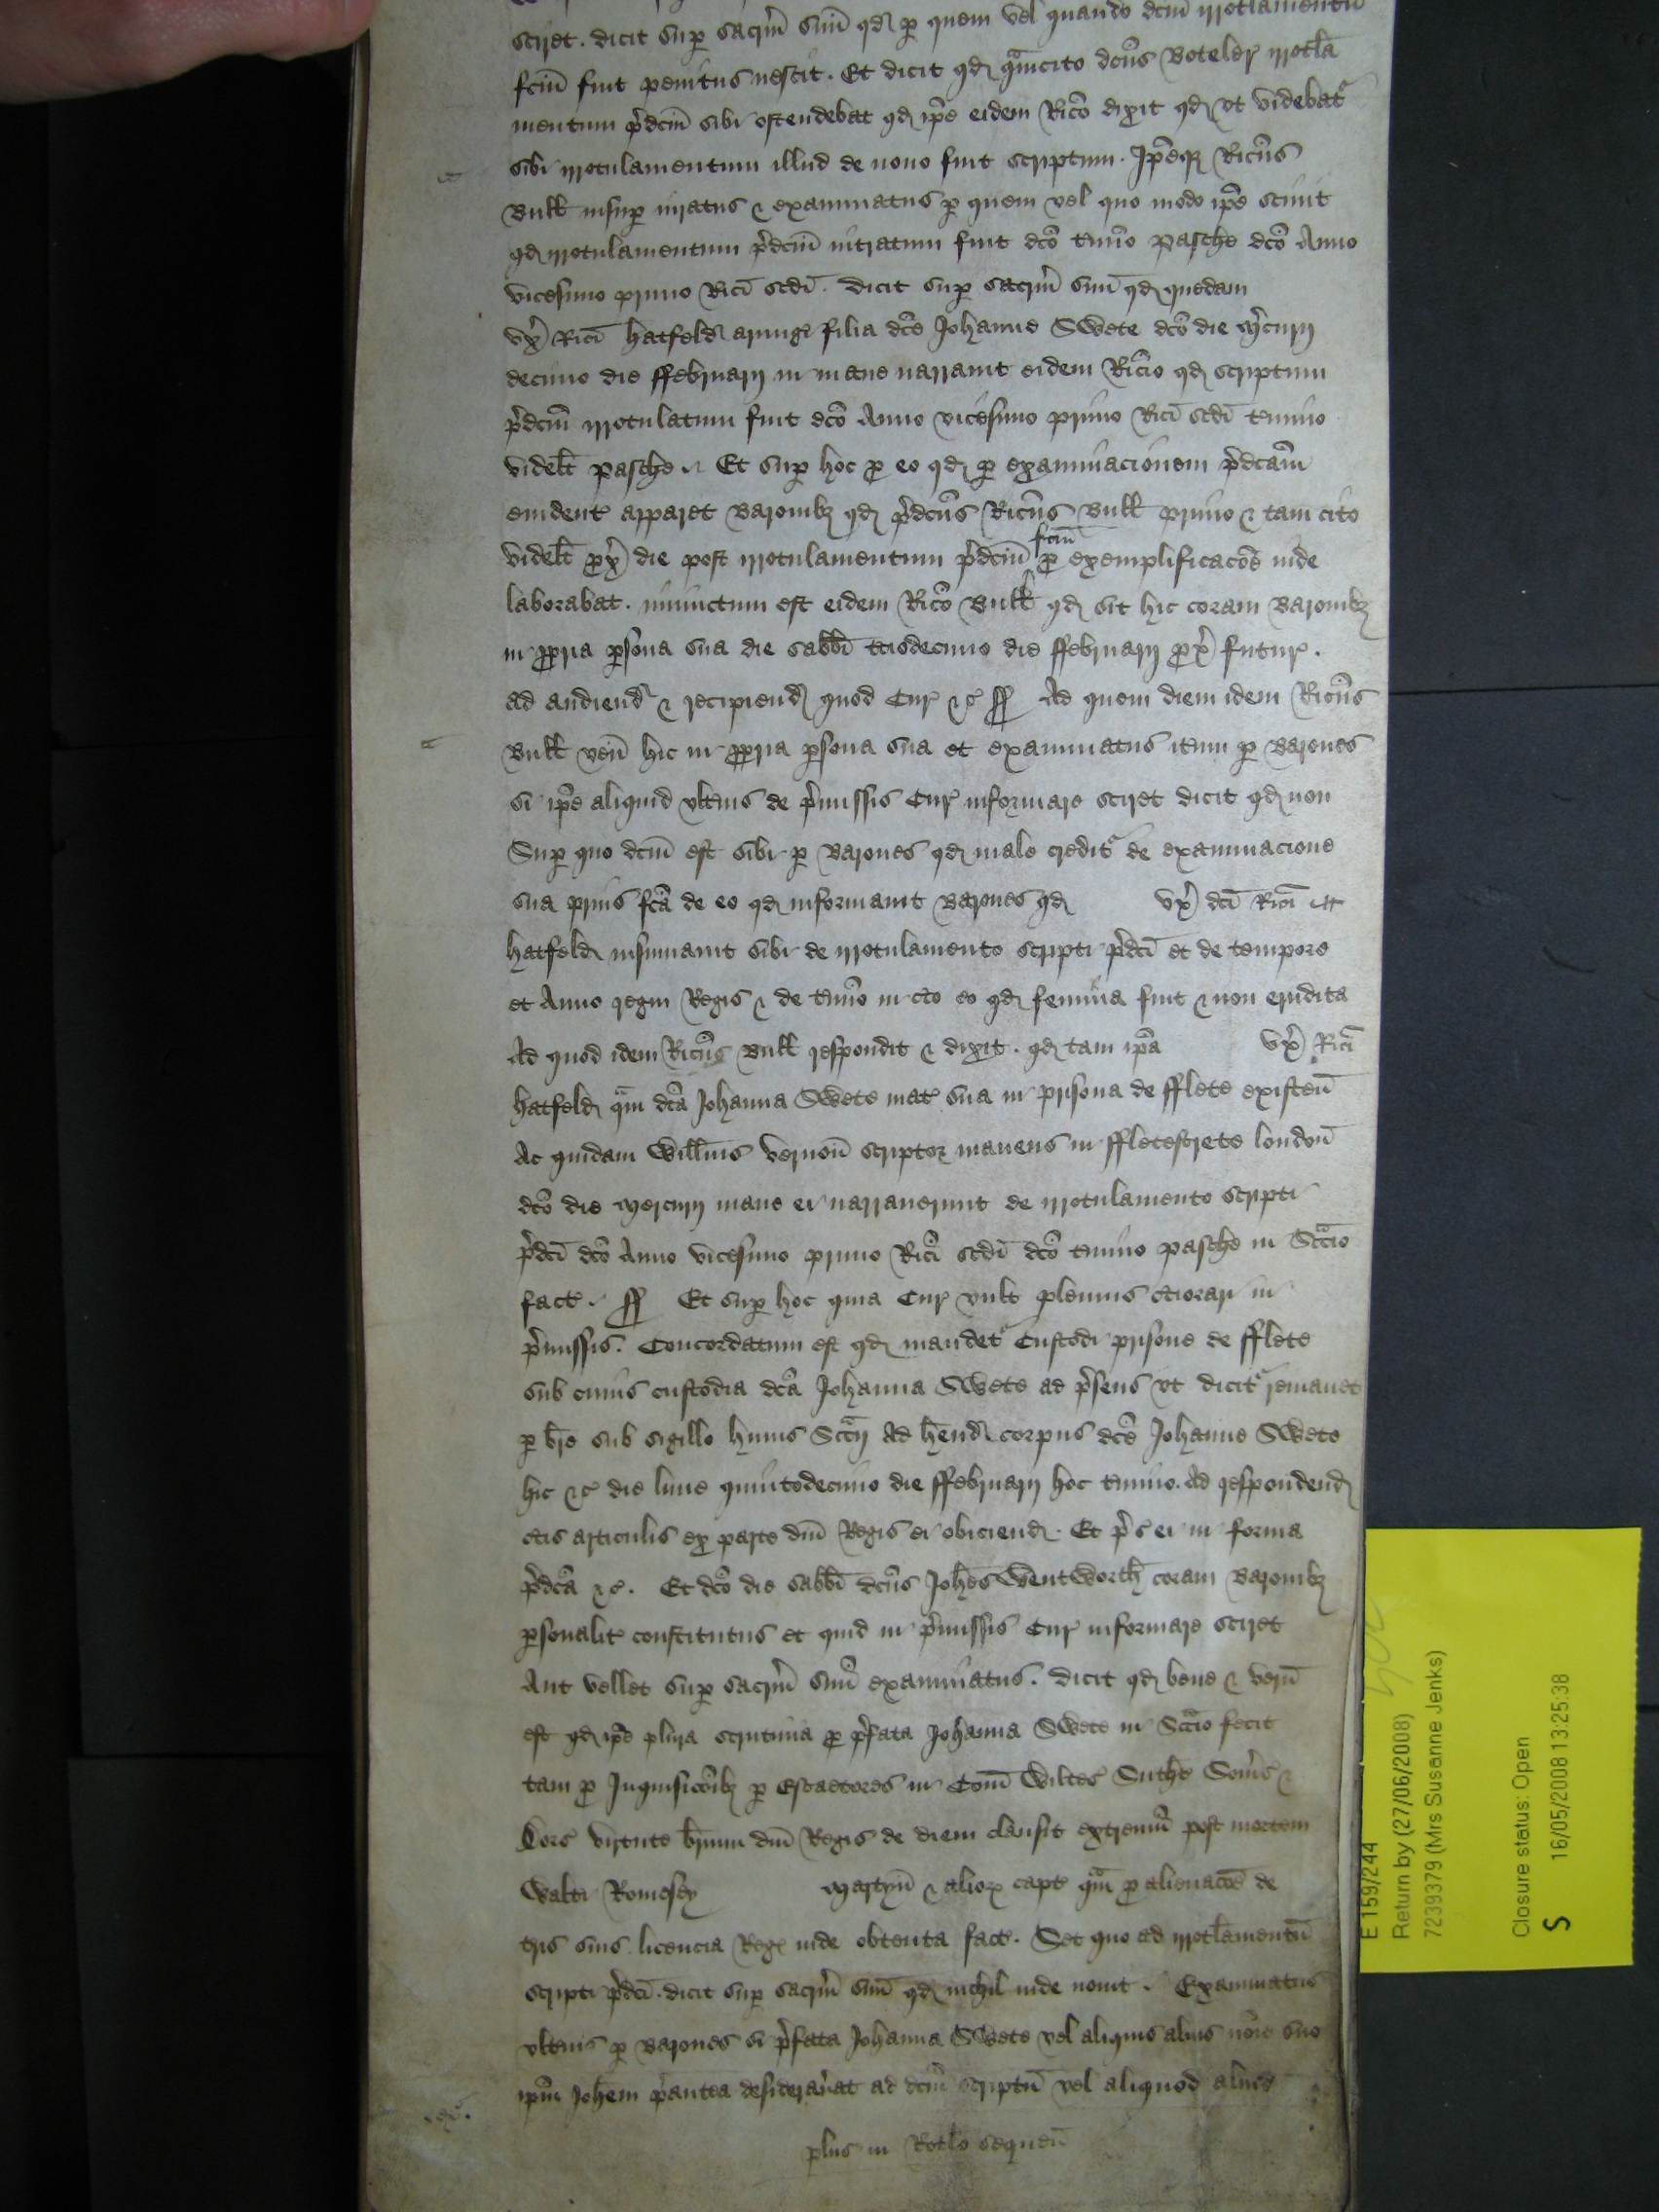 sciret. dicit sup sacrm suu qd p quem vel quando dcm irrotlamentu
fcm fuit penitus nescit. Et dicit qd qamcito dcus Boteler irrotla
mentum pdcm sibi ostendebat qd ipe eidem Rico dixit qd vt videbat
sibi irrotulamentum illud de nouo fuit scriptum. Ipeq Ricus
Bull insup iuratus & examinatus p quem vel quo modo ipe sciuit
qd irrotulamentum pdcm intratum fuit dco tmio Pasche dco Anno
vicesimo primo Rici scdi. dicit sup sacrm suu qd quedam
vx Rici Hatfeld armigi filia dce Johanne Swete dco die Mcurij
decimo die ffebruarij in mane narrauit eidem Ricio qd scriptum
pdcm irrotulatum fuit dco Anno vicesimo primo Rici scdi tmino
videlt pasche. Et sup hoc p eo qd p examinacionem pdcam
euident apparet Baronibz qd pdcus Ricus Bull primo & tam cito
videlt px die post irrotulamentum pdcm fcm p exemplificacoe inde
laborabat. iniunctum est eidem Rico Bull qd sit hic coram Baronibz
in ppria psona sua die sabbi tcisdecimo die ffebruarij px futur.
ad audiend & recipiend quod Cur &c Ad quem diem idem Ricus
Bull ven hic in ppria psona sua et examinatus itum p Barones
si ipe aliquid vltius de pmissis Cur informare sciret dicit qd non
Sup quo dcm est sibi p Barones qd male credit de examinacione
sua prius fca de eo qd informauit Barones qd vx dci Rici
Hatfeld insinuauit sibi de irrotulamento scripti pdci et de tempore
et Anno regni Regis & de tmio in cto eo qd femina fuit & non erudita
Ad quod idem Ricus Bull respondit & dixit. qd tam ipa vx Rici
Hatfeld qam dca Johanna Swete mat sua in prisona de fflete existen
Ac quidam Willms Vernon scriptor manens in ffletestrete london
dco die Mercurij mane ei narrauerunt de irrotulamento scripti
pdci dco Anno vicesimo primo Rici scdi dco tmino pasche in Sccio
fact. Et sup hoc quia Cur vult plenius ctiorari in
pmissis. Concordatum est qd mandet Custodi prisone de fflete
sub cuius custodia dca Johanna Swete ad psens vt dicit remanet
p bre sub sigillo huius Sccij Ad hend corpus dce Johanne Swete
hic &c die lune quintodecimo die ffebruarij hoc tmino. Ad respondend
ctis articulis ex parte dni Regis ei obiciend. Et p ei in forma
pdca &c. Et dco die sabbi dcus Johes Wentworth coram Baronibz
psonalit constitutus et quid in pmissis Cur informare sciret
Aut vellet sup sacrm suu examinatus. dicit qd bene & veru
est qd ipe plura scrutinia p pfata Johanna Swete in Sccio fecit
tam p Inquisicoibz p Escaetores in Com Wiltes Sutht Soms &
Dors virtute brium dni Regis de diem clausit extremu post mortem
Walti Romesey Martyn & alior capt qam p alienacoe de
tris suis licencia Reg inde obtenta fact. Set quo ad irrotlamentu
scripti pdci. dicit sup sacrm suu qd nichil inde nouit. Examinatus
vltius p Barones si pfata Johanna Swete vel aliquis alius noie suo
ipm Johem pantea desiderauat ad dcm scriptu vel aliquod aliud
plus in Rotlo sequen
E 159/244
Return by (27/06/2008)
7239379 (Mrs Susanne Jenks)
Closure status: Open
S 16/05/2008 13:25:38